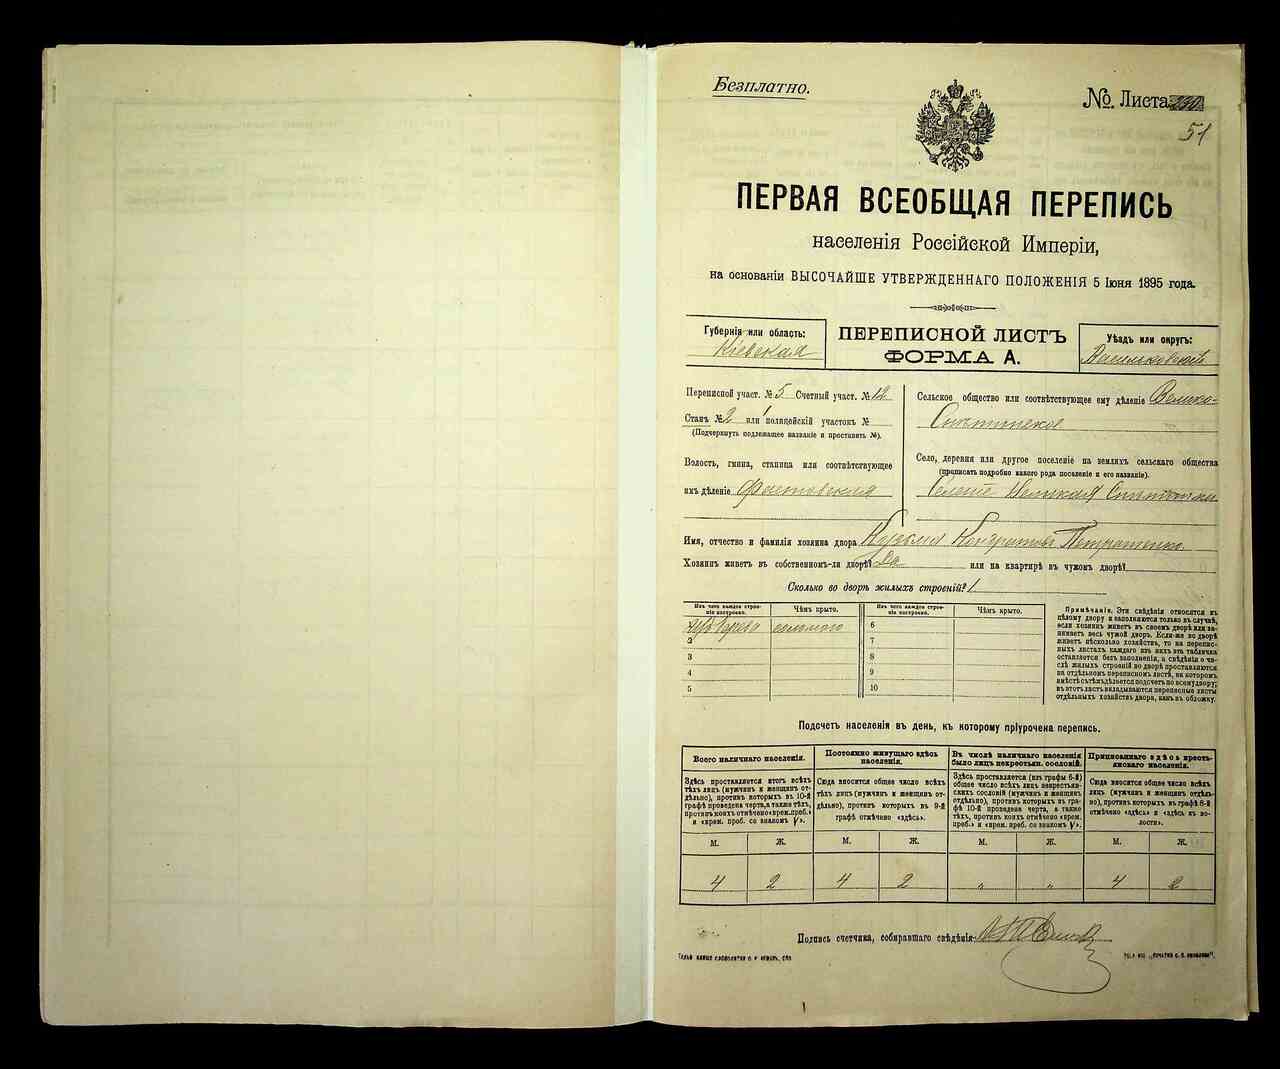 Безплатно.
№. Листа 230
51
ПЕРВАЯ ВСЕОБЩАЯ ПЕРЕПИСЬ
населенія Россійской Имперіи,
на основаніи ВЫСОЧАЙШЕ УТВЕРЖДЕННАГО ПОЛОЖЕНІЯ 5 Іюня 1895 года.
Губернія или область:
Кіевская
ПЕРЕПИСНОЙ ЛИСТЪ
ФОРМА А.
Уѣздъ или округъ:
Васильковскій
Переписной участ. № 5 Счетный участ. № 12
Станъ № 2 или полицейскій участокъ №
(Подчеркнуть подлежащее названіе и проставить №).
Волость, гмина, станица или соотвѣтствующее
имъ дѣленіе Фастовская
Сельское общество или соотвѣтствующее ему дѣленіе Велико-
Снѣтинское
Село, деревня или другое поселеніе на земляхъ сельскаго общества
(прописать подробно какого рода поселеніе и его названіе).
Селеніе Великая Снѣтинка
Имя, отчество и фамилія хозяина двора Кузьма Кондратовъ Петрашенко
Хозяинъ живетъ въ собственномъ-ли дворѣ? Да или на квартирѣ въ чужомъ дворѣ?
Сколько во дворѣ жилыхъ строеній? 1
Изъ чего каждое строеніе построено.
Чѣмъ крыто.
Изъ чего каждое строеніе построено.
Чѣмъ крыто.
изъ дерева соломою
2
3
4
5
6
7
8
9
10
Примѣчаніе. Эти свѣдѣнія относятся къ
цѣлому двору и заполняются только въ случаѣ,
если хозяинъ живетъ въ своемъ дворѣ или за-
нимаетъ весь чужой дворъ. Если-же во дворѣ
живетъ нѣсколько хозяйствъ, то на перепис-
ныхъ листахъ каждаго изъ нихъ эта табличка
оставляется безъ заполненія, а свѣдѣнія о чи-
слѣ жилыхъ строеній во дворѣ проставляются
на отдѣльномъ переписномъ листѣ, на которомъ
вмѣстѣ съ тѣмъ дѣлается подсчетъ по всему двору;
въ этотъ листъ вкладываются переписные листы
отдѣльныхъ хозяйствъ двора, какъ въ обложку.
Подсчетъ населенія въ день, къ которому пріурочена перепись.
Всего наличнаго населенія.
Здѣсь проставляется итогъ всѣхъ
тѣхъ лицъ (мужчинъ и женщинъ от-
дѣльно), противъ которыхъ въ 10-й
графѣ проведена черта, а также тѣхъ,
противъ коихъ отмѣчено «врем. преб.»
и «врем. преб. со знакомъ V».
Постоянно живущаго здѣсь
населенія.
Сюда вносится общее число всѣхъ
тѣхъ лицъ (мужчинъ и женщинъ от-
дѣльно), противъ которыхъ въ 9-й
графѣ отмѣчено «здѣсь».
Въ числѣ наличнаго населенія
было лицъ некрестьян. сословій.
Здѣсь проставляется (изъ графы 6-й)
общее число всѣхъ лицъ некрестьян-
скихъ сословій (мужчинъ и женщинъ
отдѣльно), противъ которыхъ въ гра-
фѣ 10-й проведена черта, а также
тѣхъ, противъ коихъ отмѣчено «врем.
преб.» и «врем. преб. со знакомъ V».
Приписаннаго здѣсь кресть-
янскаго населенія.
Сюда вносится общее число всѣхъ
лицъ (мужчинъ и женщинъ отдѣль-
но), противъ которыхъ въ графѣ 8-й
отмѣчено «здѣсь» и «здѣсь въ во-
лости».
М. Ж. М. Ж. М. Ж. М. Ж.
4 2 4 2 „ „ 4 2
Подпись счетчика, собиравшаго свѣдѣнія